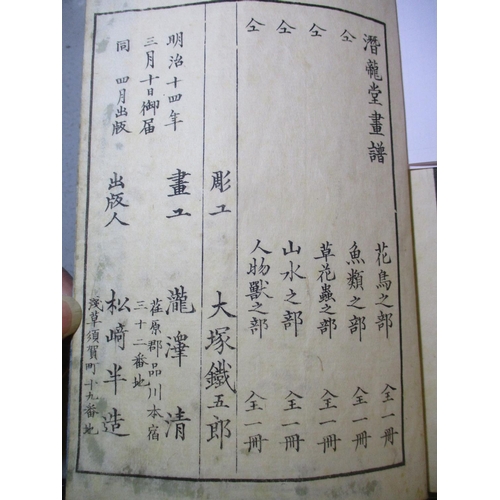 潛龍堂畫譜 花鳥之部 全一冊
仝 魚類之部 全一冊
仝 草花蟲之部 全一冊
仝 山水之部 全一冊
仝 人物獸之部 全一冊
彫工 大塚鐵五郎
明治十四年 畫工 瀧澤清
三月十日御届 荏原郡品川本宿
三十二番地
同 四月出版 出版人 松崎半造
浅草須賀町十九番地